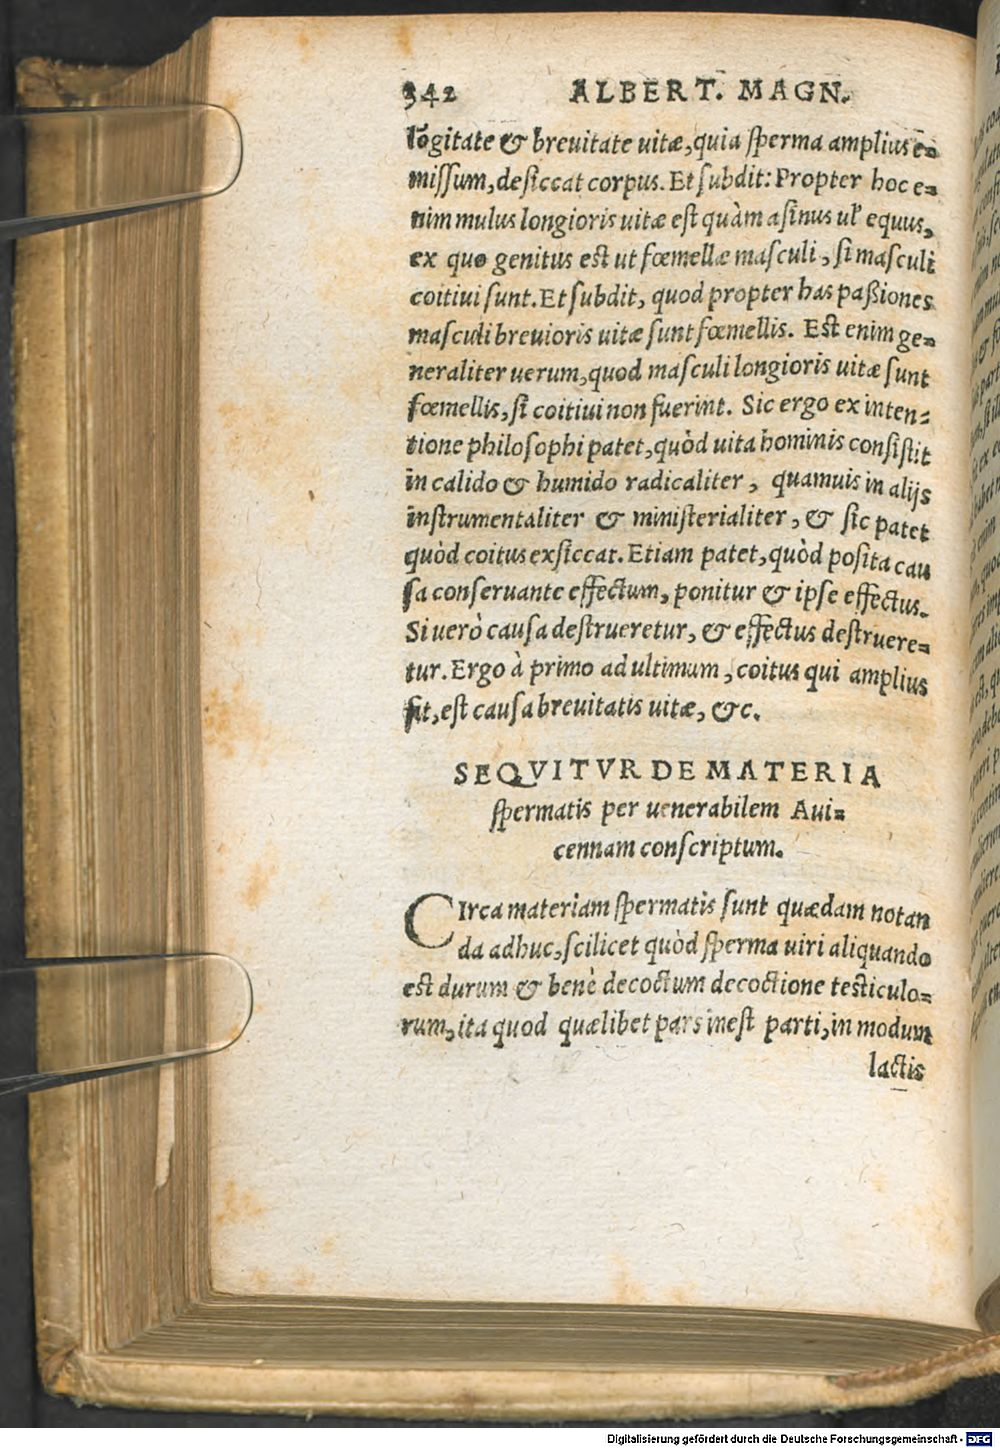 342 ALBERT. MAGN.
lōgitate & breuitate uitæ, quia sperma amplius e=
missum, desiccat corpus. Et subdit: Propter hoc e=
nim mulus longioris uitæ est quàm asinus ul' equus,
ex quo genitus est ut fœmellæ masculi, si masculi
coitiui sunt. Et subdit, quod propter has paßiones
masculi breuioris uitæ sunt fœmellis. Est enim ge=
neraliter uerum, quod masculi longioris uitæ sunt
fœmellis, si coitiui non fuerint. Sic ergo ex inten=
tione philosophi patet, quòd uita hominis consistit
in calido & humido radicaliter, quamuis in alijs
instrumentaliter & ministerialiter, & sic patet
quòd coitus exsiccat. Etiam patet, quòd posita cau
sa conseruante effectum, ponitur & ipse effectus.
Si uerò causa destrueretur, & effectus destruere=
tur. Ergo à primo ad ultimum, coitus qui amplius
fit, est causa breuitatis uitæ, &c.
SEQVITVR DE MATERIA
spermatis per uenerabilem Aui=
cennam conscriptum.
CIrca materiam spermatis sunt quædam notan
da adhuc, scilicet quòd sperma uiri aliquando
est durum & benè decoctum decoctione testiculo=
rum, ita quod quælibet pars inest parti, in modum
lactis
Digitalisierung gefördert durch die Deutsche Forschungsgemeinschaft - DFG